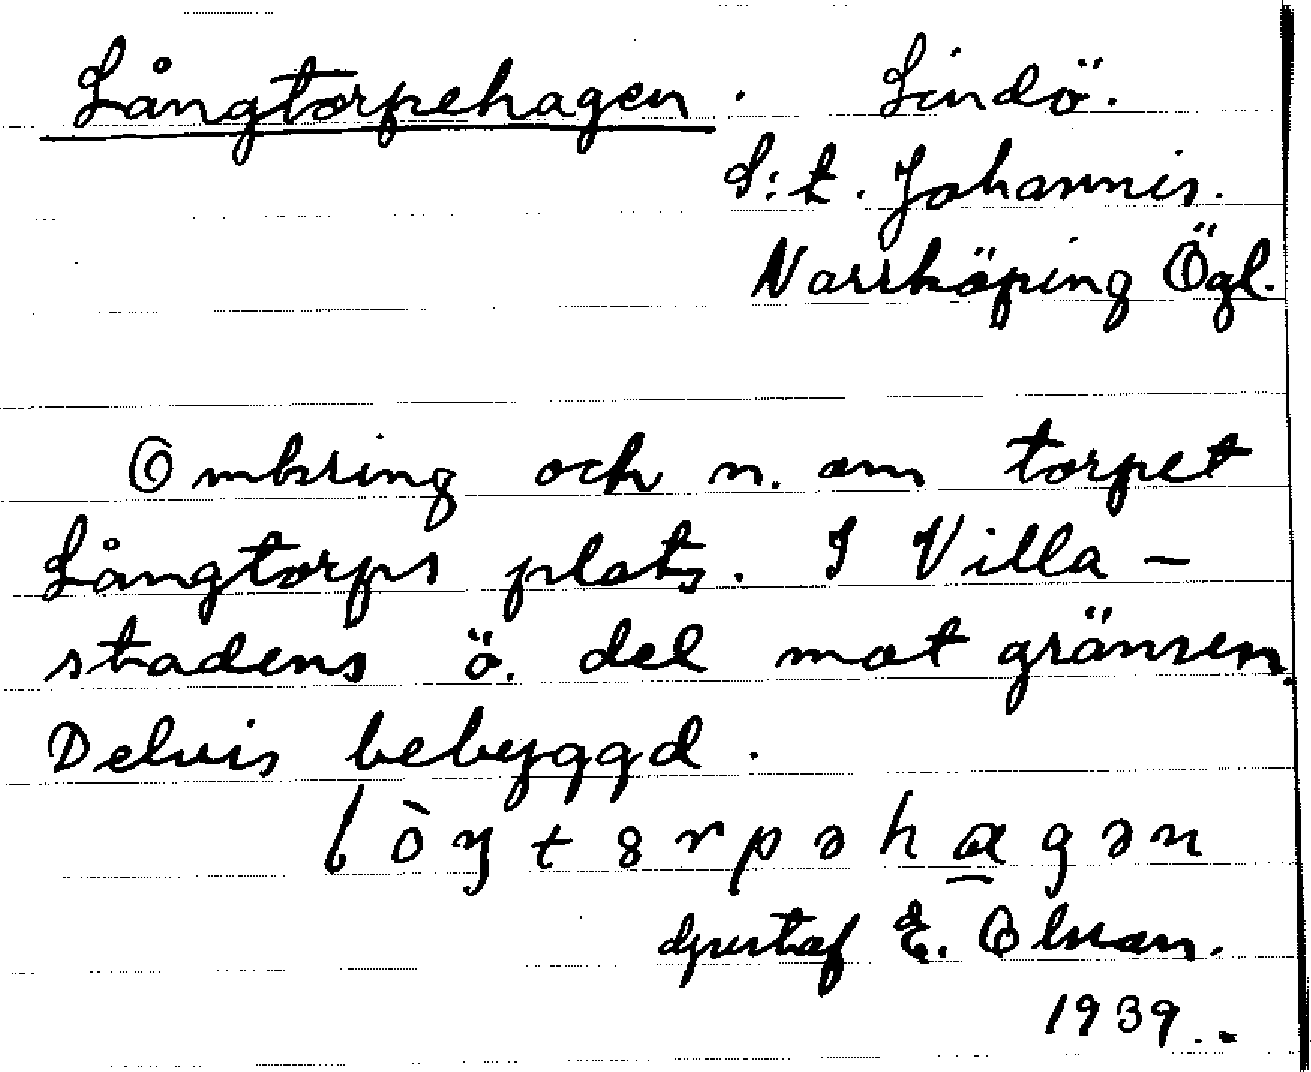 Långtorpehagen. Lindö.
S:t. Johannis.
Norrköping Ögl.
Omkring och n. om torpet
Långtorps plats. I Villa-
stadens ö. del mot gränsen.
Delvis bebyggd.
lòŋtɞrpəhagən
Gustaf E. Olsson.
1939.